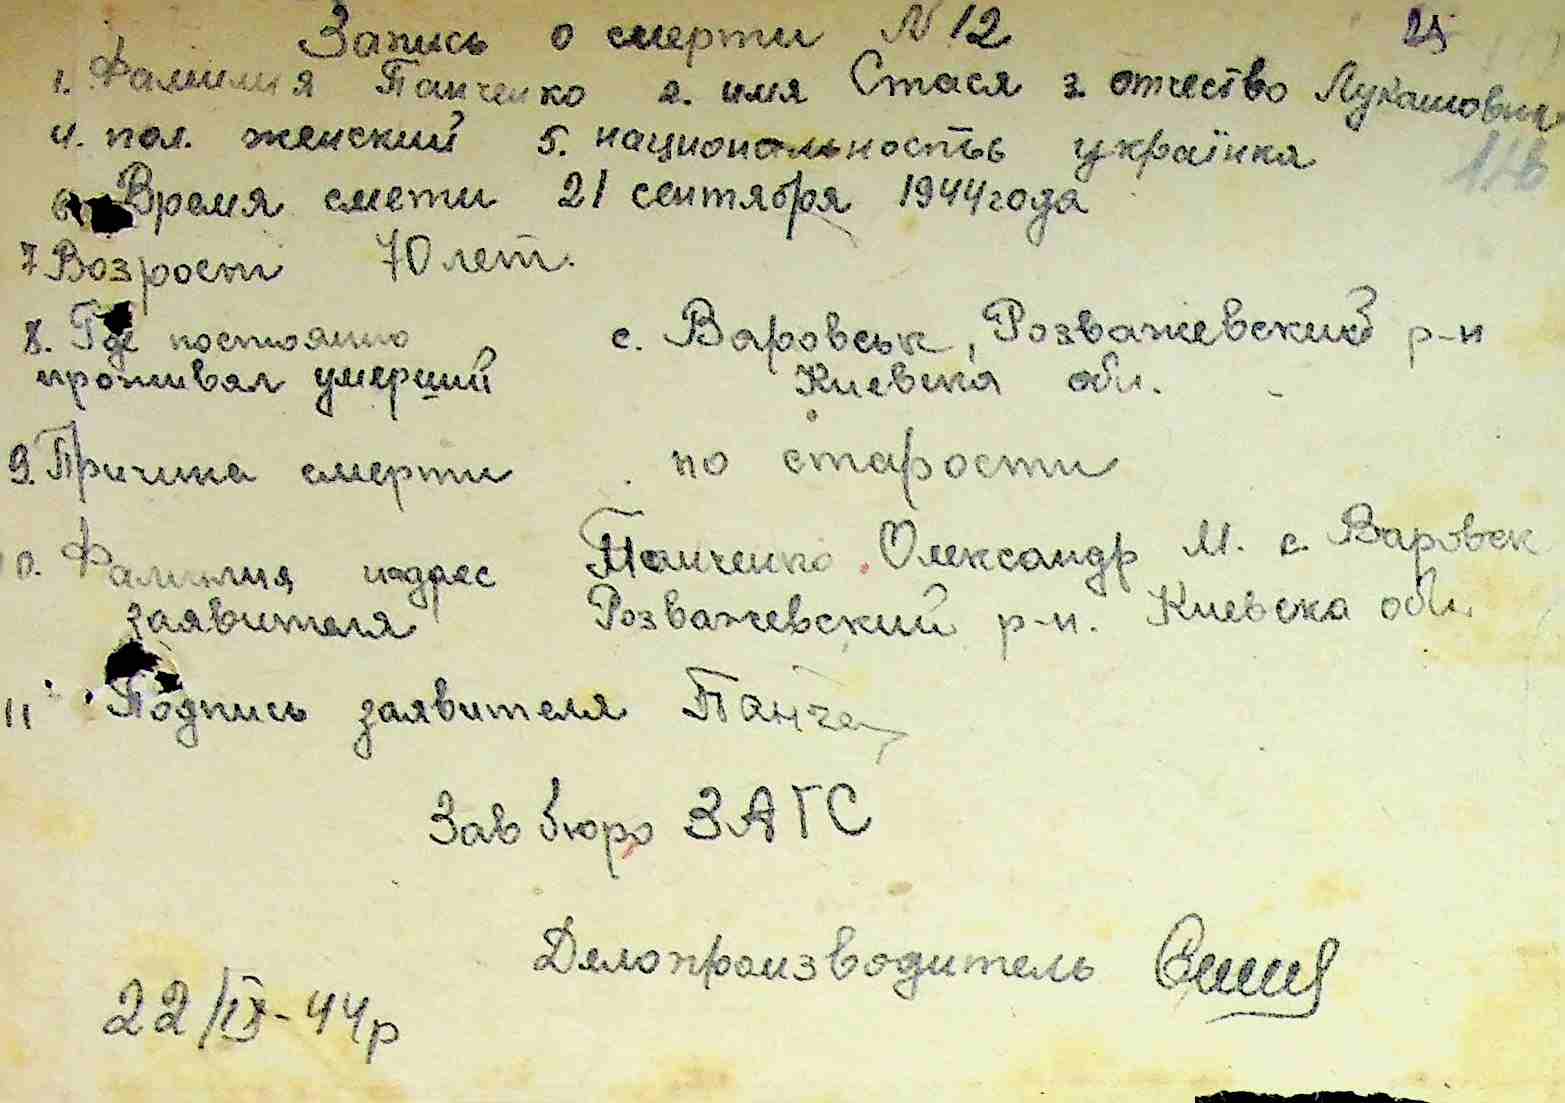 Запись о смерти N 12
1. Фамилия Панченко 2. имя Стася 3. отчество Лукашовна
4. пол. женский 5. национальность українка
6. Время смети 21 сентября 1944 года
7 Возрост 70 лет.
8. Где постоянно с. Варовськ, Розважевский р-н
проживал умерший Киевска обл.
9. Причина смерти по старости
10. Фамилия и адрес Панченко Олександр М. с. Варовск
заявителя Розважевский р-н. Киевска обл.
11 Подпись заявителя Панче
Зав бюро ЗАГС
Делопроизводитель
22/IX-44р